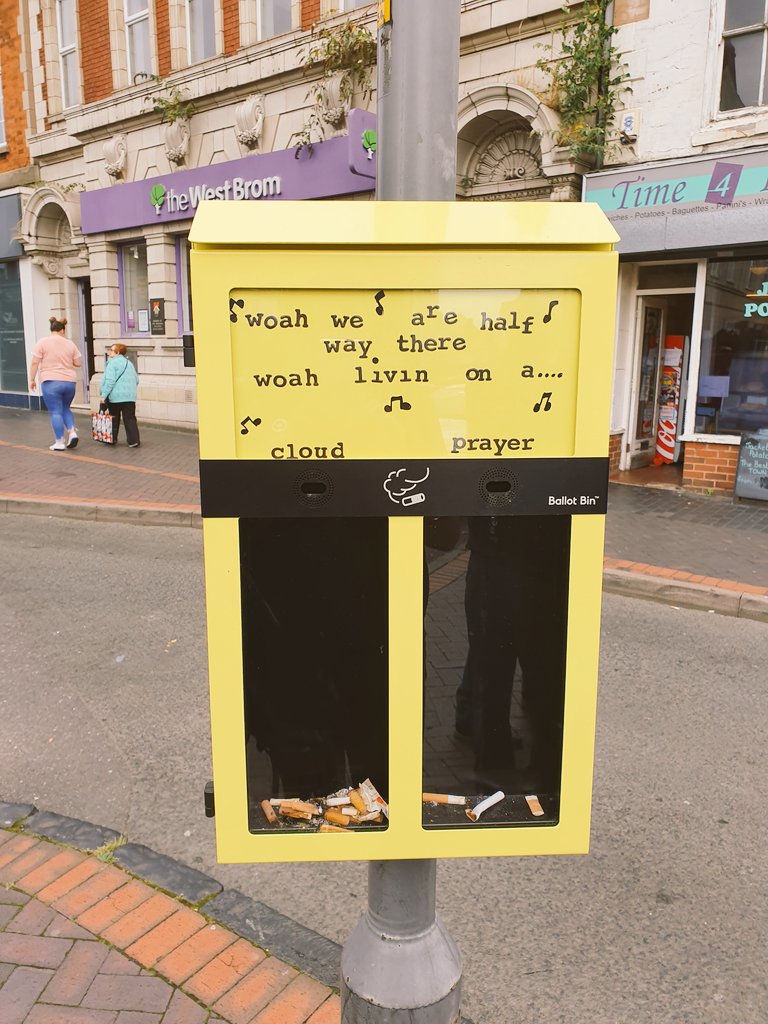 the West Brom
Time 4
iches - Potatoes - Baguettes - Panini's - Wra
woah we are half
way there
woah livin on a....
cloud prayer
Ballot Bin™
PO
Coca